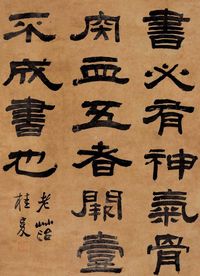 書必有神氣骨
肉血五者闕壹
不成書也
老菭
桂复